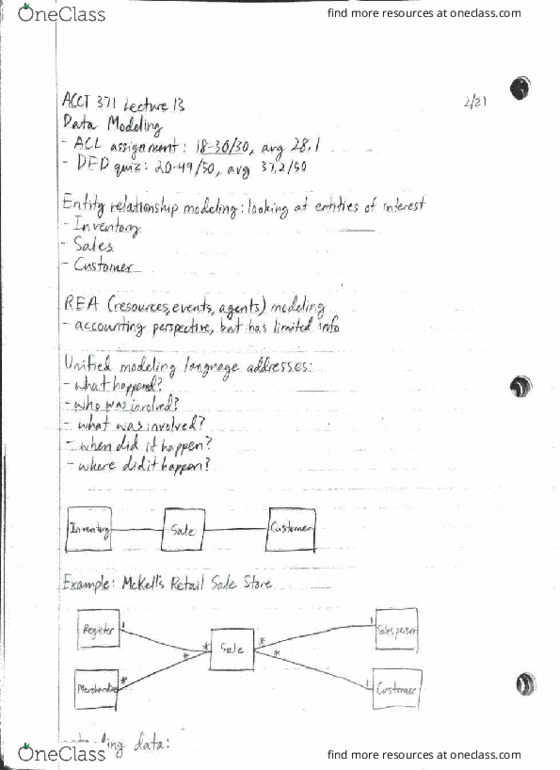 OneClass
find more resources at oneclass.com
ACCT 371 Lecture 13
2/21
Data Modeling
- ACL assignment: 18-30/30, avg 28.1
- DFD quiz: 20-49/50, avg 37.2/50
Entity relationship modeling: looking at entities of interest
- Inventory
- Sales
- Customer
REA (resources, events, agents) modeling
- accounting perspective, but has limited info
Unified modeling language addresses:
- what happened?
- who was involved?
- what was involved?
- when did it happen?
- where did it happen?
Inventory Sale Customer
Example: McKell's Retail Sale Store
Register 1 * Sale * 1 Salesperson
Merchandise * * * 1 Customer
data:
OneClass
find more resources at oneclass.com